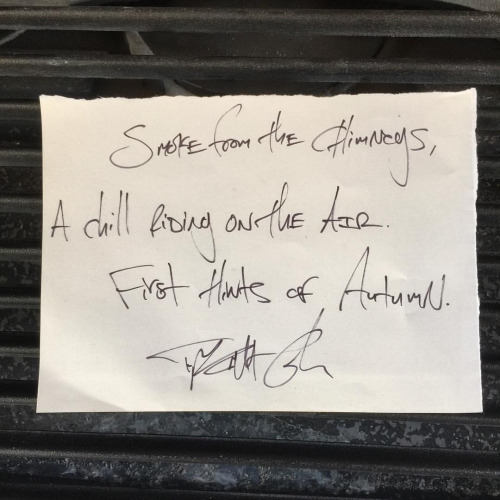 Smoke from the Chimneys,
A chill Riding on the Air.
First Hints of Autumn.